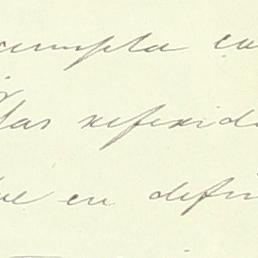 cumpla cu
las referida
que en defin